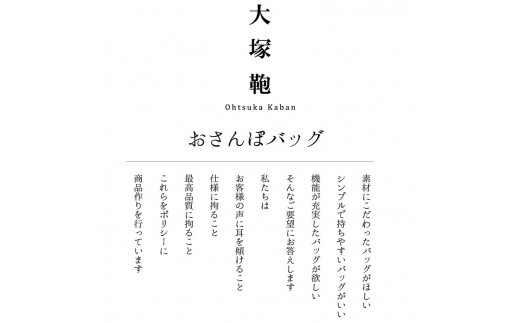 大塚鞄
Ohtsuka Kaban
おさんぽバッグ
素材にこだわったバッグがほしい
シンプルで持ちやすいバッグがいい
機能が充実したバッグが欲しい
そんなご要望にお答えします
私たちは
お客様の声に耳を傾けること
仕様に拘ること
最高品質に拘ること
これらをポリシーに
商品作りを行っています